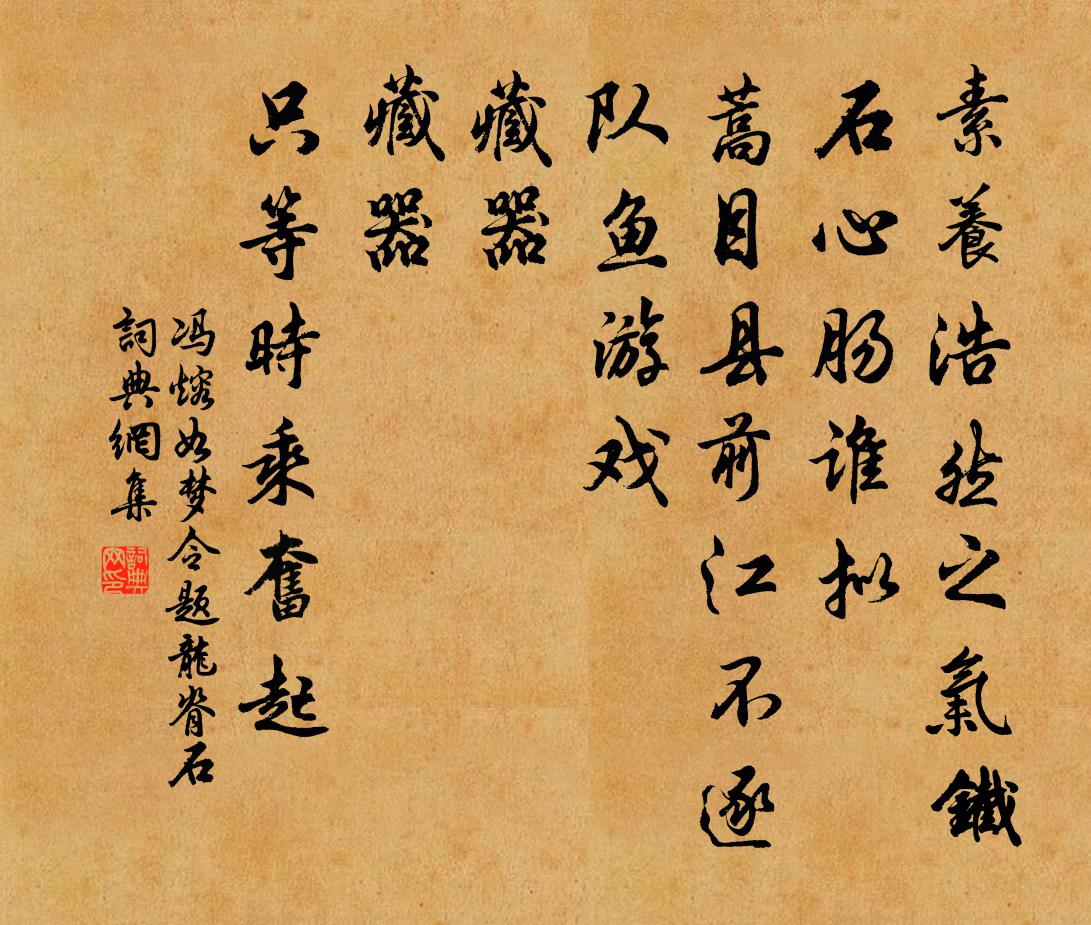 素養浩然之氣鐵
石心肠谁拟
蒿目县前江不逐
队鱼游戏
藏器
藏器
只等時乘奮起
冯熔如梦令题龍脊石
詞典網集
詞典网印